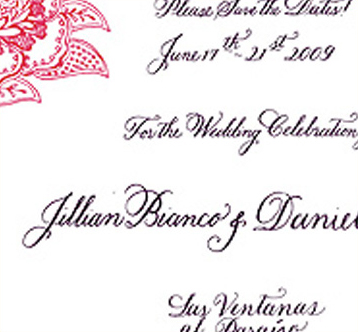 Please Save the Dates!
June 17th - 21st 2009
For the Wedding Celebration
Jillian Bianco & Daniel
Las Ventanas
al Paraiso